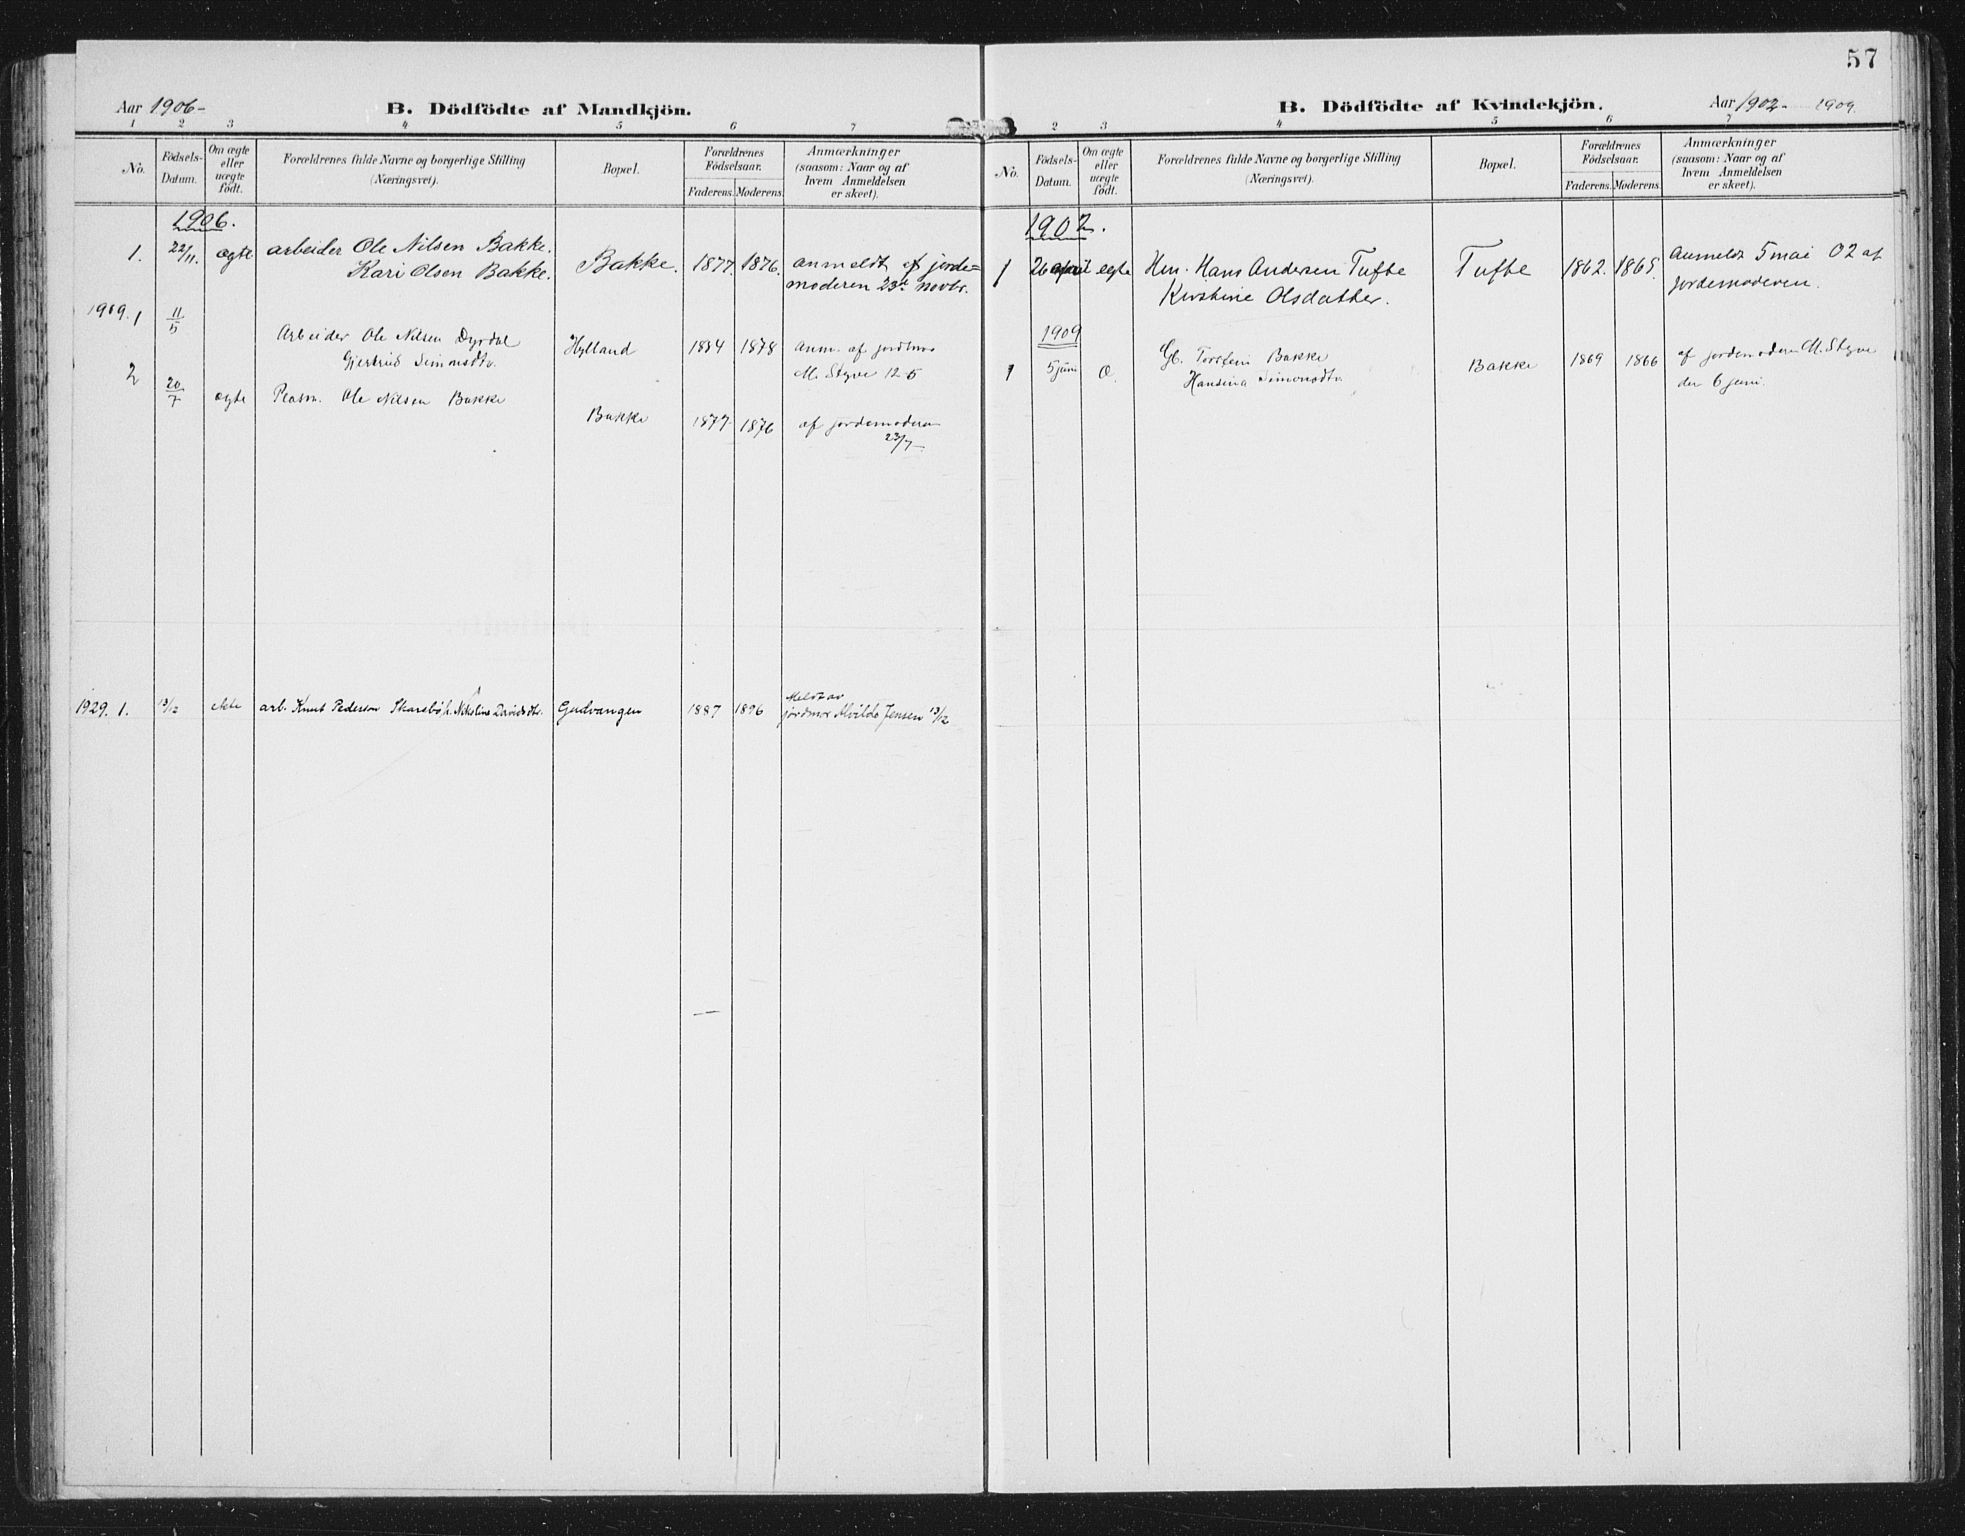 57
Aar 1906-
B. Dödfödte af Mandkjön.
1 2 3 4 5 6 7
No.
Födsels-Datum.
Om ægte eller uægte födt.
Forældrenes fulde Navne og borgerlige Stilling (Næringsvei).
Bopæl.
Forældrenes Födselsaar.
Faderens. Moderens.
Anmærkninger (saasom: Naar og af hvem Anmeldelsen er skeet).
1906.
1. 22/11. ægte arbeider Ole Nilsen Bakke. Bakke. 1877. 1876. anmeldt af jorde=
Kari Olsen Bakke. moderen 23de novbr.
1909. 1 11/5 Arbeider Ole Nilsen Dyrdal Hylland 1884 1878 Anm. af jordmo
Gjertrud Simonsdtr. M. Styve 12-5
2 20/7 ægte Ole Nilsen Bakke Bakke 1877 1876 af jordemoderen
23/7
1929. 1. 13/12 ekte arb. Knut Pederson Skarsbö h. Nikoline Davidsdtr. Gudvangen 1887 1896 Meldt av
jordmor Alvilde Jensen 13/12
B. Dödfödte af Kvindekjön.
Aar 1902- 1909.
2 3 4 5 6 7
No.
Födsels-Datum.
Om ægte eller uægte födt.
Forældrenes fulde Navne og borgerlige Stilling (Næringsvei).
Bopæl.
Forældrenes Födselsaar.
Faderens. Moderens.
Anmærkninger (saasom: Naar og af hvem Anmeldelsen er skeet).
1902.
1 26 april egte Hans Andersen Tufte Tufte 1862. 1865. Anmeldt 5 mai 02 af
Kirstine Olsdatter. jordemoderen.
1909
1 5 juni Gb. Torstein Bakke Bakke 1869 1866 af jordemoderen M. Styve
Hansina Simonsdtr. den 6 juni.